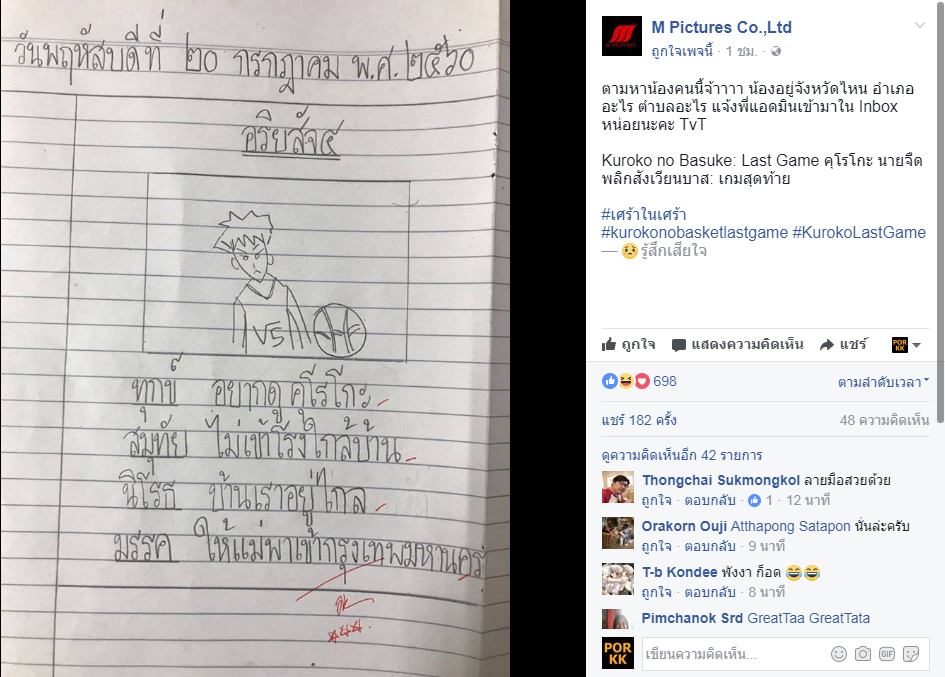 วันพฤหัสบดีที่ ๒๐ กรกฎาคม พ.ศ. ๒๕๖๐
อริยสัจ๔
V5
ทุกข์ อยากดู คุโรโกะ
สมุทัย ไม่เข้าโรงใกล้บ้าน
นิโรธ บ้านเราอยู่ไกล
มรรค ให้แม่พาเข้ากรุงเทพมหานคร
M PICTURES
M Pictures Co.,Ltd
ถูกใจเพจนี้ · 1 ชม. ·
ตามหาน้องคนนี้จ้าาาา น้องอยู่จังหวัดไหน อำเภอ
อะไร ตำบลอะไร แจ้งพี่แอดมินเข้ามาใน Inbox
หน่อยนะคะ TvT
Kuroko no Basuke: Last Game คุโรโกะ นายจืด
พลิกสังเวียนบาส: เกมสุดท้าย
#เศร้าในเศร้า
#kurokonobasketlastgame #KurokoLastGame
— 😥รู้สึกเสียใจ
ถูกใจ แสดงความคิดเห็น แชร์ POR KK
698 ตามลำดับเวลา
แชร์ 182 ครั้ง 48 ความคิดเห็น
ดูความคิดเห็นอีก 42 รายการ
Thongchai Sukmongkol ลายมือสวยด้วย
ถูกใจ · ตอบกลับ · 1 · 12 นาที
Orakorn Ouji Atthapong Satapon นั่นล่ะครับ
ถูกใจ · ตอบกลับ · 9 นาที
T-b Kondee พังงา ก็อด 😄😄
ถูกใจ · ตอบกลับ · 8 นาที
Pimchanok Srd GreatTaa GreatTata
POR KK เขียนความคิดเห็น... GIF